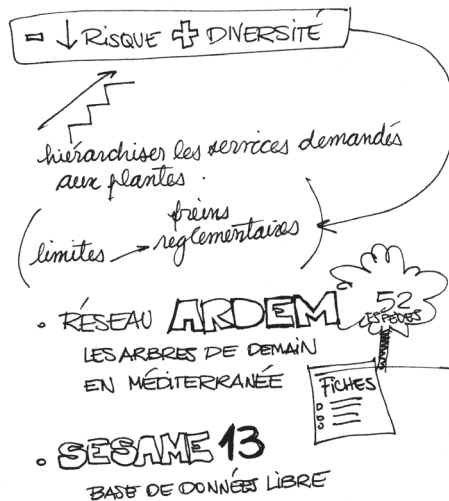 - ↓ RISQUE + DIVERSITÉ
hiérarchiser les services demandés
aux plantes.
freins
(limites → réglementaires)
• RÉSEAU ARDEM
LES ARBRES DE DEMAIN
EN MÉDITERRANÉE
52
ESPÈCES
FICHES
• SESAME 13
BASE DE DONNÉES LIBRE